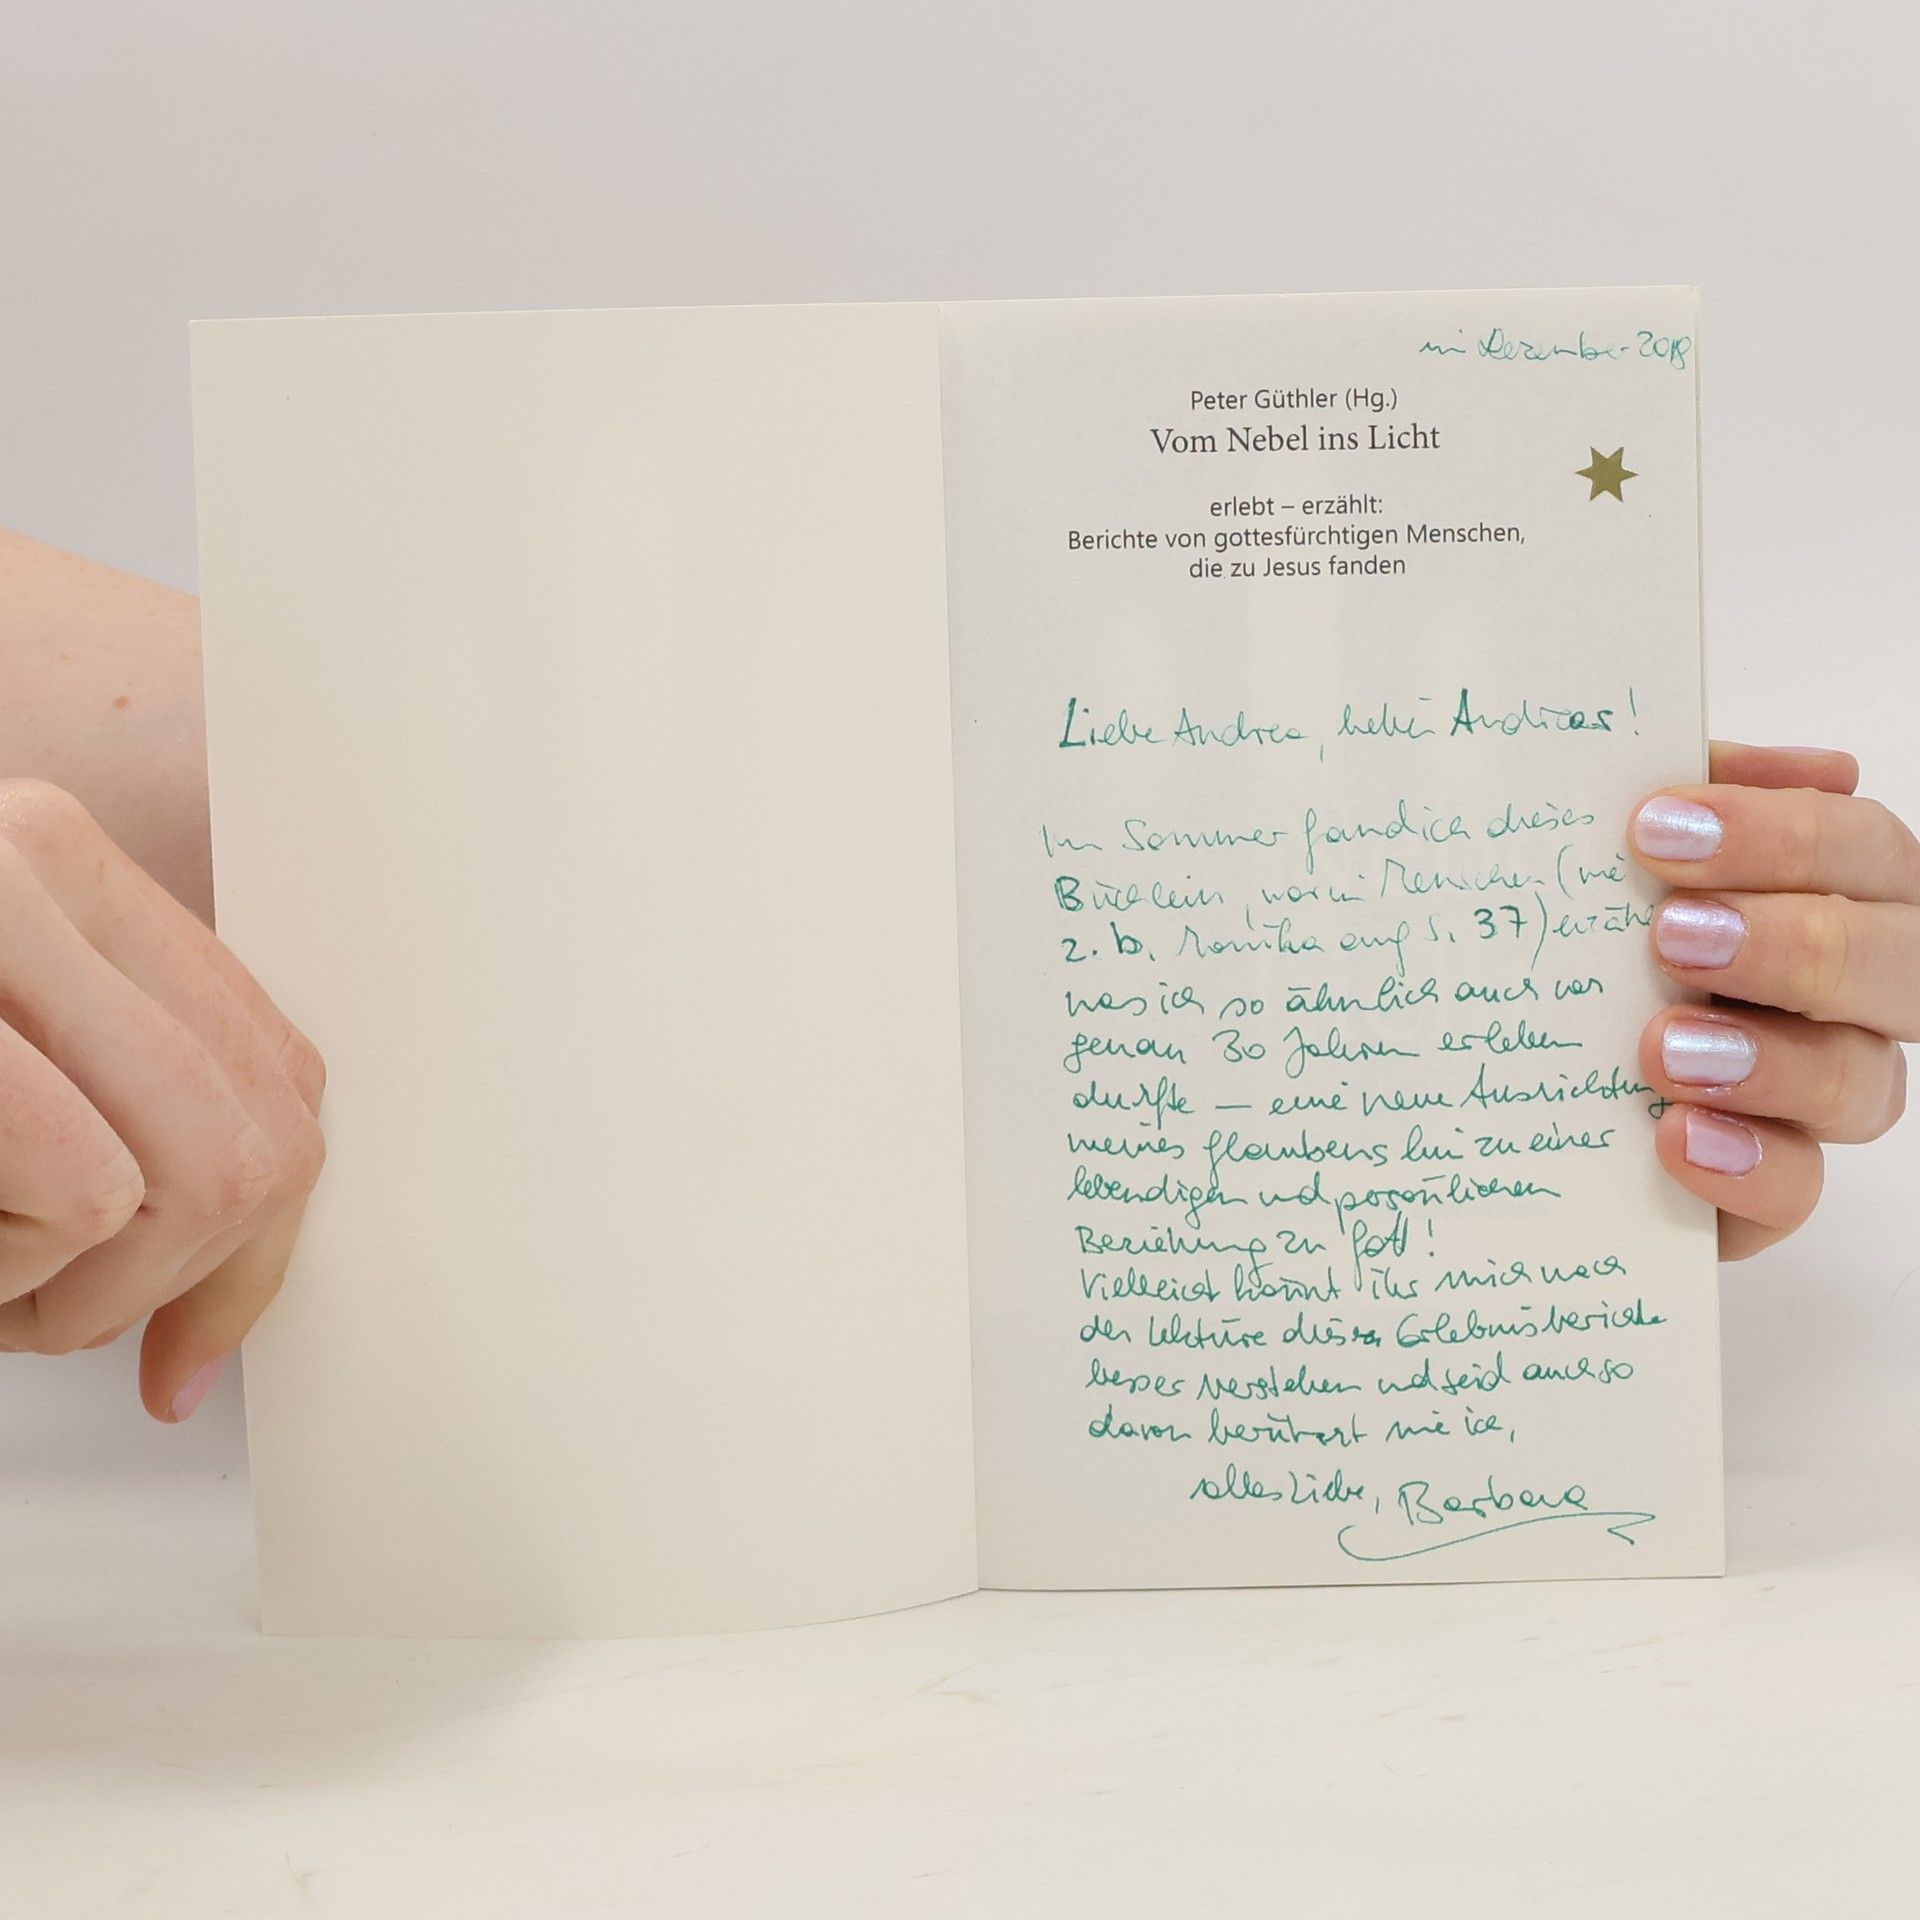 im Dezember 2018
Peter Güthler (Hg.)
Vom Nebel ins Licht
erlebt – erzählt:
Berichte von gottesfürchtigen Menschen,
die zu Jesus fanden
Liebe Andrea, lieber Andreas!
Im Sommer fand ich dieses
Büchlein, worin Menschen (wie
z. b. Monika auf S. 37) erzähl
was ich so ähnlich auch vor
genau 30 Jahren erleben
durfte — eine neue Ausrichtung
meines Glaubens hin zu einer
lebendigen und persönlichen
Beziehung zu Gott!
Vielleicht könnt ihr mich nach
der Lektüre dieser Erlebnisberichte
besser verstehen und seid auch so
davon berührt wie ich,
alles Liebe, Barbara